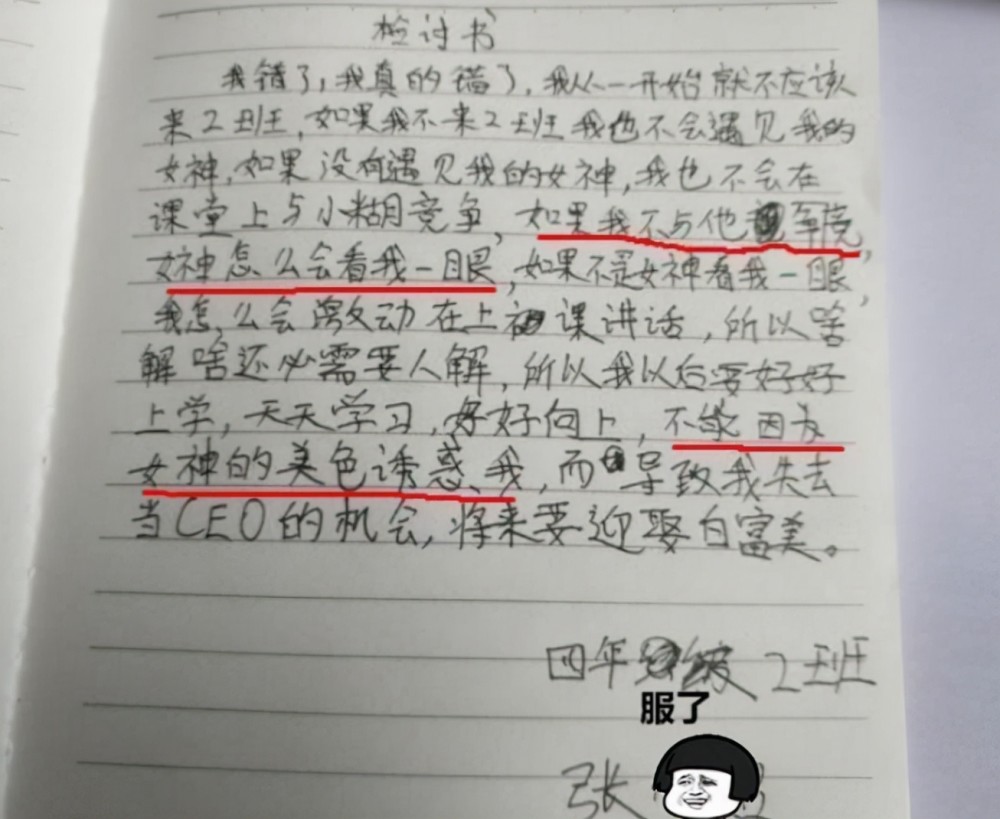 检讨书
我错了，我真的错了，我从一开始就不应该
来2班，如果我不来2班我也不会遇见我的
女神，如果没有遇见我的女神，我也不会在
课堂上与小糊竞争，如果我不与他争竞，
女神怎么会看我一眼，如果不是女神看我一眼，
我怎么会激动在上课讲话，所以啥
解啥还必需要人解，所以我以后要好好
上学，天天学习，好好向上，不能因为
女神的美色诱惑、我，而导致我失去
当CEO的机会，将来要迎娶白富美。
四年级2班
服了
张